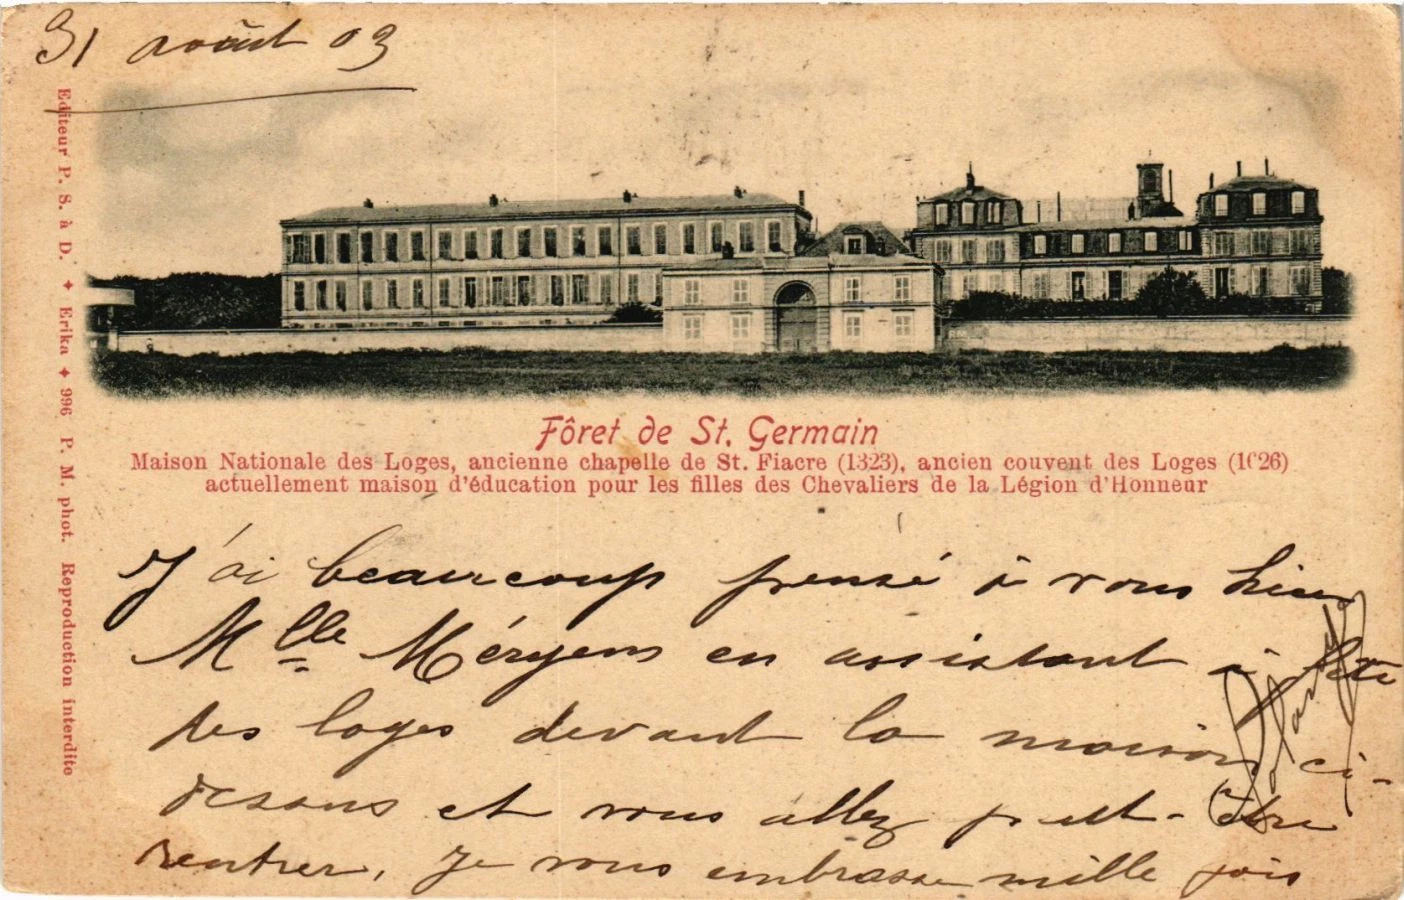 31 août 03
Editeur P. S. à D. ✦ Erika ✦ 996 P. M. phot. Reproduction interdite
Fôret de St. Germain
Maison Nationale des Loges, ancienne chapelle de St. Fiacre (1323), ancien couvent des Loges (1626)
actuellement maison d'éducation pour les filles des Chevaliers de la Légion d'Honneur
J'ai beaucoup pensé à vous hier
Mlle en assistant à fête
des loges devant la maison ci-
dessous et vous allez peut-être
rentrer, je vous embrasse mille fois